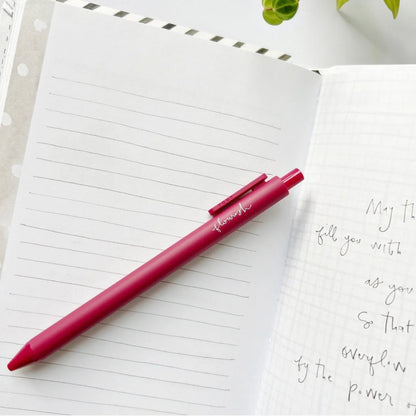 flourish
May th
fill you with
as you
So that
overflow
by the power o